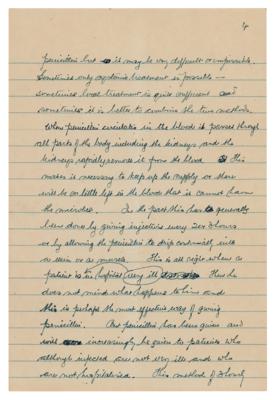 4
penicillin but it may be very difficult or impossible.
Sometimes only systemic treatment is possible –
sometimes local treatment is quite sufficient and
sometimes it is better to combine the two methods.
When penicillin circulates in the blood it passes through
all parts of the body including the kidneys and the
kidneys rapidly remove it from the blood. This
makes it necessary to keep up the supply or there
will be so little left in the blood that it cannot harm
the microbes. In the past this has generally
been done by giving injections every 2 or 3 hours
or by allowing the penicillin to drip continually into
a vein or a muscle. This is all right when a
patient is in hospital very ill. Then he
does not mind what happens to him and
this is perhaps the most effective way of giving
penicillin. But penicillin has been given and
will increasingly be given to patients who
although infected are not very ill and who
are not hospitalised. This method of 3 hourly